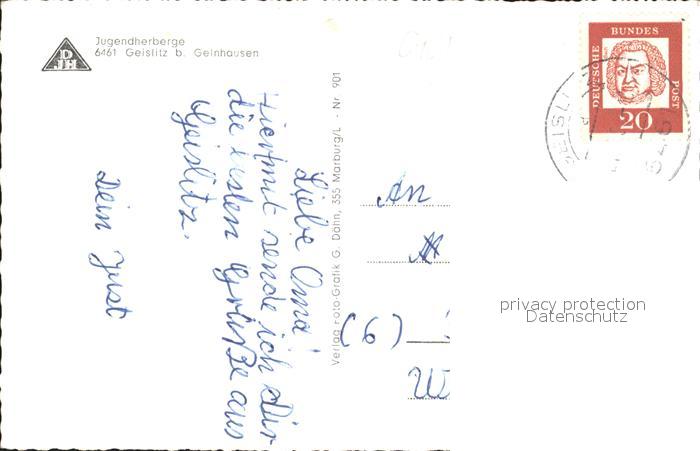 DJH
Jugendherberge
6461 Geislitz b. Gelnhausen
Liebe Oma!
Hiermit sende ich Dir
die ersten Grüße aus
Geislitz.
Dein Just
Verlag Foto-Grafik G. Dähn, 355 Marburg/L - Nr. 901
An
(6)
W
DEUTSCHE
BUNDES
POST
20
GEISLI
privacy protection
Datenschutz